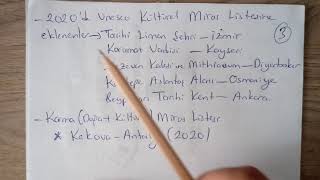 - 2020'de Unesco Kültürel Miras Listesine
eklenenler → Tarihi Liman Şehri - İzmir
③
Koramaz Vadisi - Kayseri
Zerzevan Kalesi ve Mithraeum - Diyarbakır
Aslantaş Alanı - Osmaniye
Beypazarı Tarihi Kent - Ankara
- Karma (Doğa + Kültürel) Miras Listesi
* Kekova - Antalya (2020)